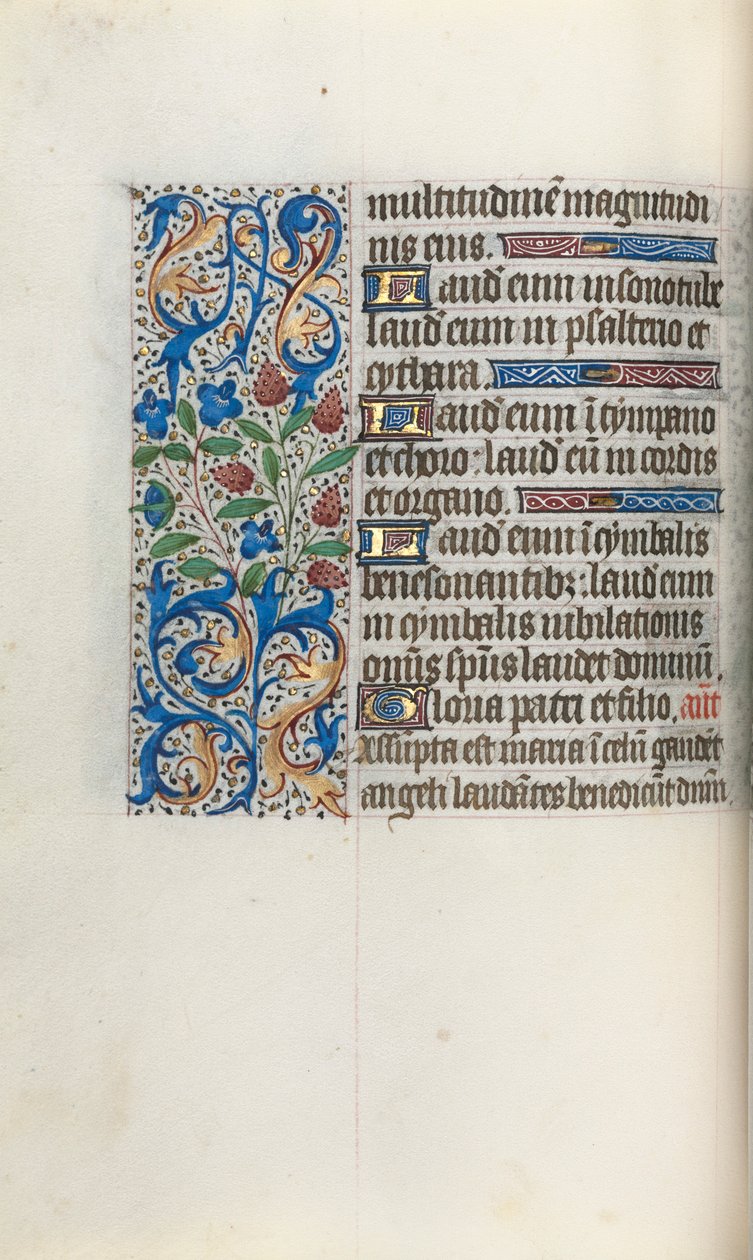 multitudinē magnitudi
nis eius.
Laud' eum in sono tube
laud' eum in psalterio et
cythara.
Laud' eum ī tympano
et choro: laud' eū in cordis
et organo.
Laud' eum ī cymbalis
benesonantibꝫ: laud' eum
in cymbalis iubilationis
om̄s sp̄us laudet dominū.
Gloria patri et filio. an̄t
Assūpta est maria ī celū gaudēt
angeli laudātes benedicūt dn̄m.